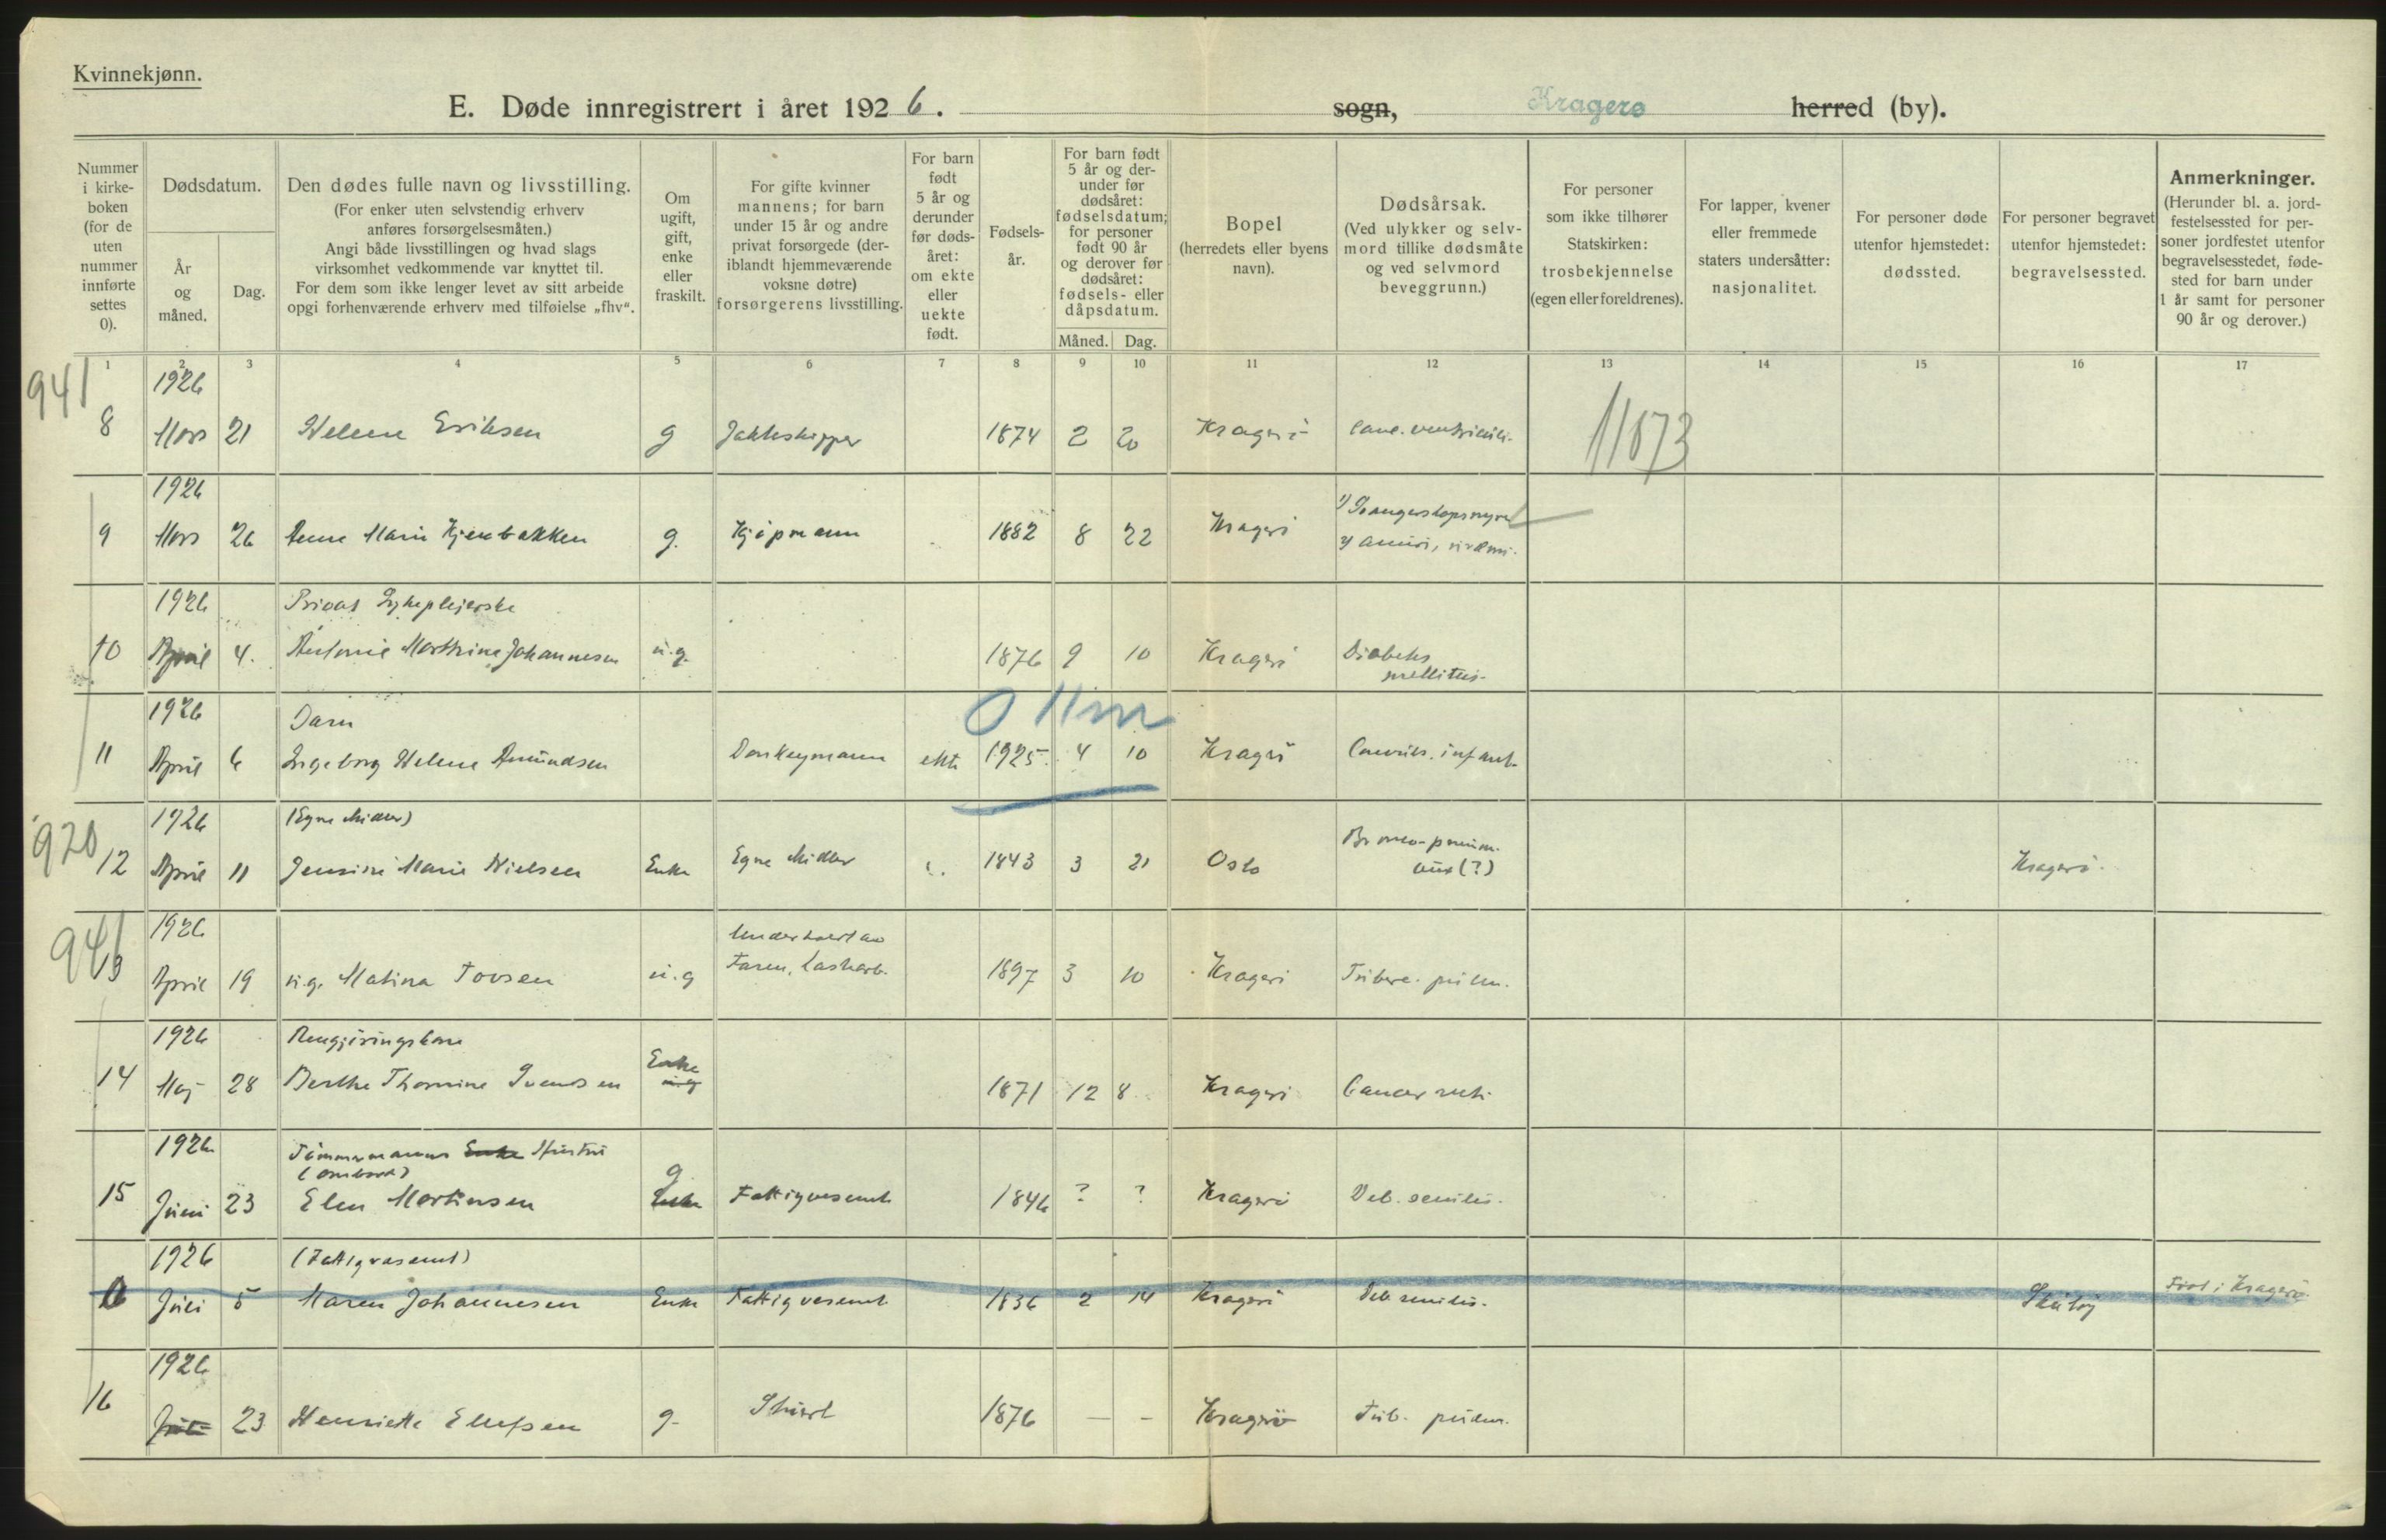 Kvinnekjønn.
E. Døde innregistrert i året 1926. sogn, Kragerø herred (by).
Nummer i kirke-boken (for de uten nummer innførte settes 0).
Dødsdatum.
År og måned.
Dag.
Den dødes fulle navn og livsstilling.
(For enker uten selvstendig erhverv
anføres forsørgelsesmåten.)
Angi både livsstillingen og hvad slags
virksomhet vedkommende var knyttet til.
For dem som ikke lenger levet av sitt arbeide
opgi forhenværende erhverv med tilføielse „fhv“.
Om ugift, gift, enke eller fraskilt.
For gifte kvinner
mannens; for barn
under 15 år og andre
privat forsørgede (der-
iblandt hjemmeværende
voksne døtre)
forsørgerens livsstilling.
For barn født 5 år og derunder før døds-året: om ekte eller uekte født.
Fødsels-år.
For barn født
5 år og der-
under før
dødsåret:
fødselsdatum;
for personer
født 90 år
og derover før
dødsåret:
fødsels- eller
dåpsdatum.
Måned. Dag.
Bopel
(herredets eller byens
navn).
Dødsårsak.
(Ved ulykker og selv-
mord tillike dødsmåte
og ved selvmord
beveggrunn.)
For personer
som ikke tilhører
Statskirken:
trosbekjennelse
(egen eller foreldrenes).
For lapper, kvener
eller fremmede
staters undersåtter:
nasjonalitet.
For personer døde
utenfor hjemstedet:
dødssted.
For personer begravet
utenfor hjemstedet:
begravelsessted.
Anmerkninger.
(Herunder bl. a. jord-
festelsessted for per-
soner jordfestet utenfor
begravelsesstedet, føde-
sted for barn under
1 år samt for personer
90 år og derover.)
1 2 3 4 5 6 7 8 9 10 11 12 13 14 15 16 17
941
1926
8 Mars 21 Helene Eriksen g Jakteskipper 1874 2 20 Kragerø Canc. ventriculi. 11073
1926
9 Mars 26 Anne Marie Kjenbakken g. Kjøpmann 1882 8 22 Kragerø 1) Svangerskapsnyre
2) anuri, uræmi.
1926 Privat Sykeplejerske
10 April 4. Antonie Marthine Johannesen u.g. 1876 9 10 Kragerø Diabetes
mellitus.
0 11 m
1926 Barn
11 April 6 Ingeborg Helene Amundsen Donkeymann ekte 1925 4 10 Kragerø Convuls. infant.
920
1926 (Egne Midler)
12 April 11 Jensine Marie Nielsen Enke Egne Midler 1843 3 21 Oslo Bronco-pneum-
oni (?) Kragerø.
941
1926 Underholdt av
13 April 19 u.g. Matina Tovsen u.g Faren, Lasharb. 1897 3 10 Kragerø Tuberc. pulm.
1926 Rengjøringskone
14 Maj 28 Berthe Thomine Svendsen Enke 1871 12 8 Kragerø Cancer recti
1926 Tømmermanns Enke Hustru
(ombord)
15 Juni 23 Elen Martinsen g Enke Fattigvesenet 1846 ? ? Kragerø Deb. senilis.
1926 (Fattigvesenet)
0 Juli 5 Maren Johannesen Enke Fattigvesenet 1836 2 14 Kragerø Deb senilis. Skåtøy Født i Kragerø.
1926
16 Juli 23 Henriette Ellefsen g. Skuerl 1876 — - Kragerø Tub. pulm.